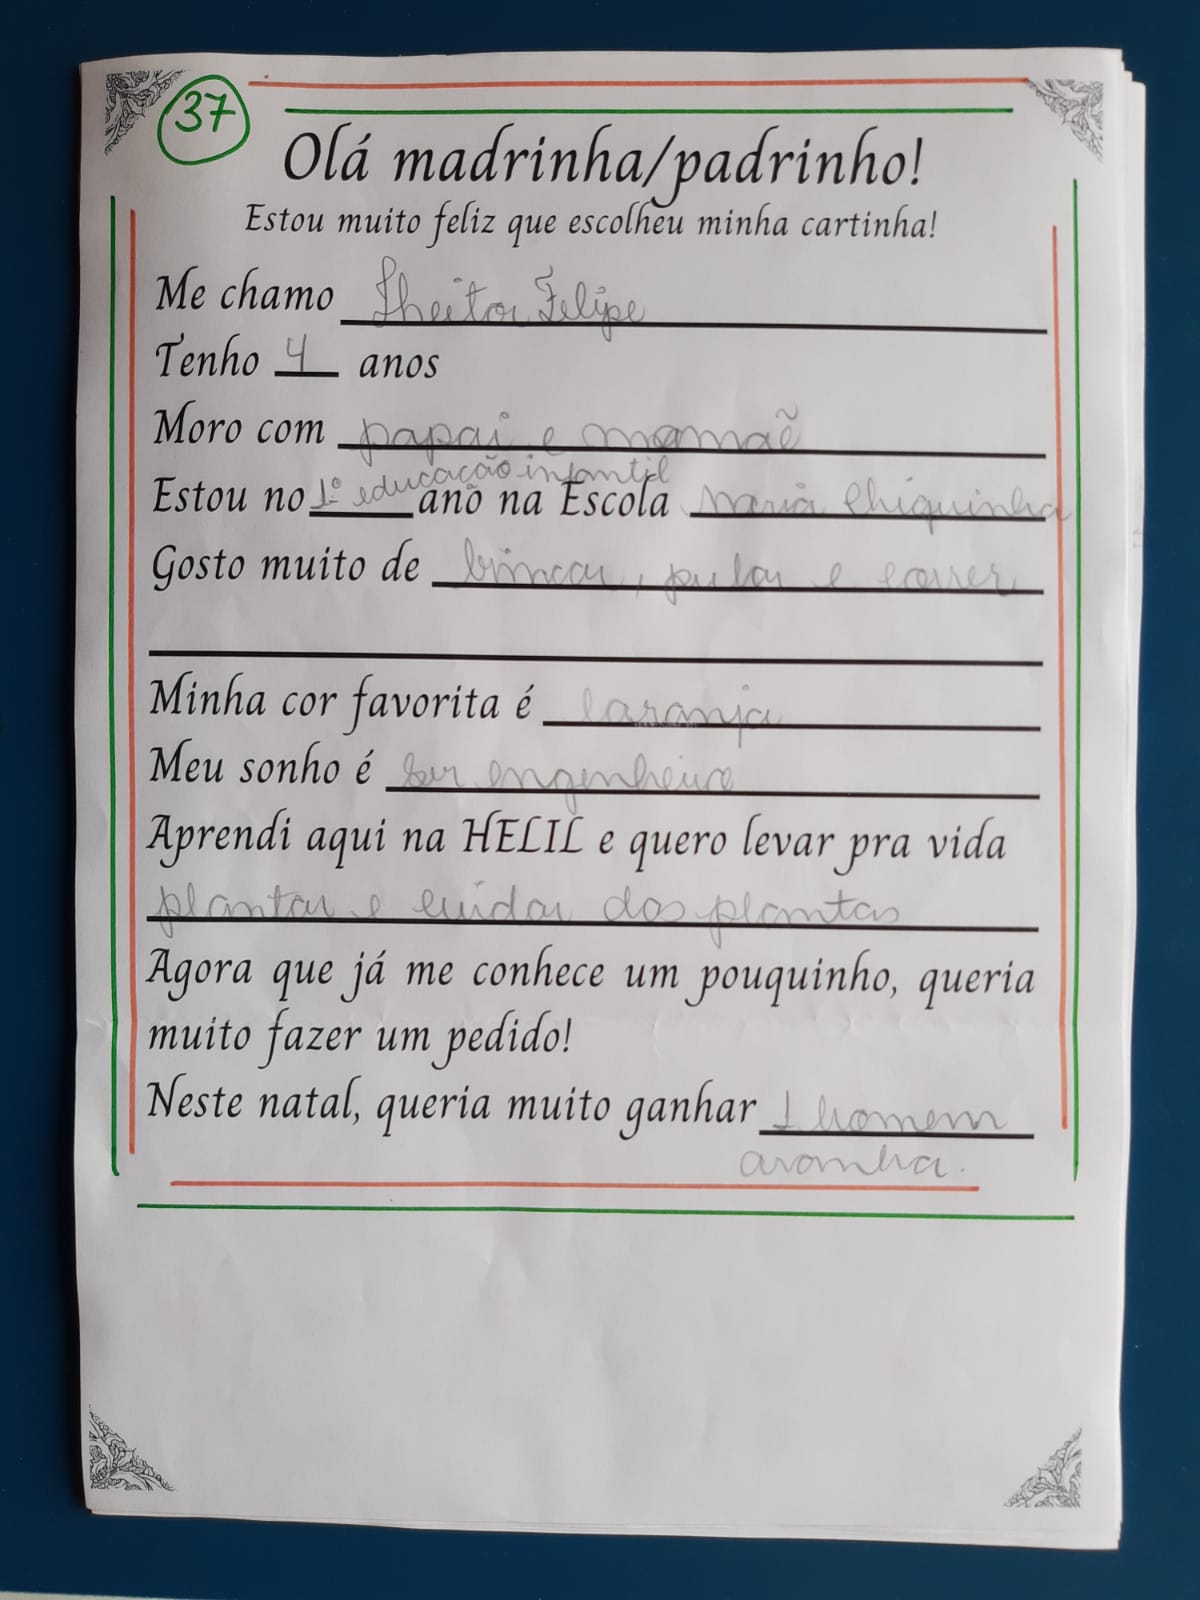 37
Olá madrinha/padrinho!
Estou muito feliz que escolheu minha cartinha!
Me chamo Lheitor Felipe
Tenho 4 anos
Moro com papai e mamãe
Estou no 1º educação infantil ano na Escola Maria Chiquinha
Gosto muito de brincar, pular e correr
Minha cor favorita é laranja
Meu sonho é ser engenheiro
Aprendi aqui na HELIL e quero levar pra vida
plantar e cuidar das plantas
Agora que já me conhece um pouquinho, queria
muito fazer um pedido!
Neste natal, queria muito ganhar 1 homem
aranha.